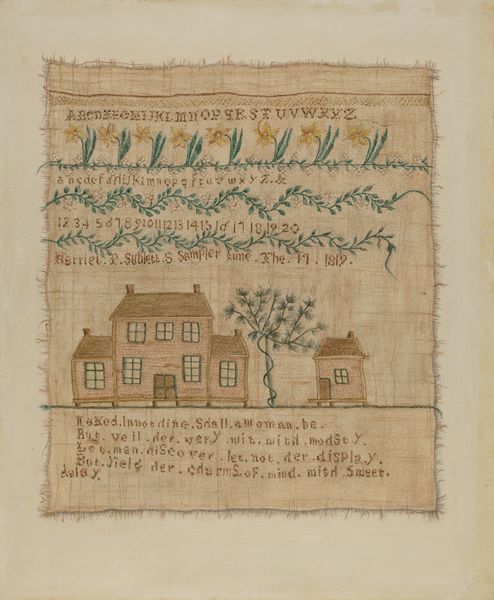 ABCDEFGHIJKLMNOPQRSTUVWXYZ
abcdefghijklmnopqrstuvwxyz.&
1234567891011121314151617181920
Harriet. P. Sublett. S Sampler June. The. 17. 1819.
Naked.innotding.Sdall.aWoman.be.
But.veil.der.very.wit.witd.modSty.
Let.man.diScover.let.not.der.display.
But.yield.der.cdarmS.of.mind.witd.Sweet.
delay